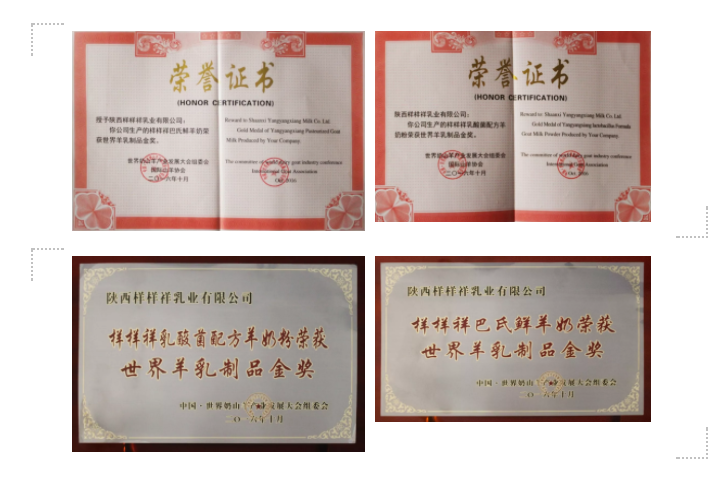 荣誉证书
(HONOR CERTIFICATION)
授予陕西样样祥乳业有限公司:
你公司生产的样样祥巴氏鲜羊奶荣
获世界羊乳制品金奖。
世界奶山羊产业发展大会组委会
国际山羊协会
二〇一六年十月
Reward to Shaanxi Yangyangxiang Milk Co. Ltd.
Gold Medal of Yangyangxiang Pasteurized Goat
Milk Produced by Your Company.
The committee of world dairy goat industry conference
International Goat Association
Oct. 2016
荣誉证书
(HONOR CERTIFICATION)
陕西样样祥乳业有限公司:
你公司生产的样样祥乳酸菌配方羊
奶粉荣获世界羊乳制品金奖。
世界奶山羊产业发展大会组委会
国际山羊协会
二〇一六年十月
Reward to Shaanxi Yangyangxiang Milk Co. Ltd.
Gold Medal of Yangyangxiang lactobacillus Formula
Goat Milk Powder Produced by Your Company.
The committee of world dairy goat industry conference
International Goat Association
Oct. 2016
陕西样样祥乳业有限公司
样样祥乳酸菌配方羊奶粉荣获
世界羊乳制品金奖
中国·世界奶山羊产业发展大会组委会
二〇一六年十月
陕西样样祥乳业有限公司
样样祥巴氏鲜羊奶荣获
世界羊乳制品金奖
中国·世界奶山羊产业发展大会组委会
二〇一六年十月